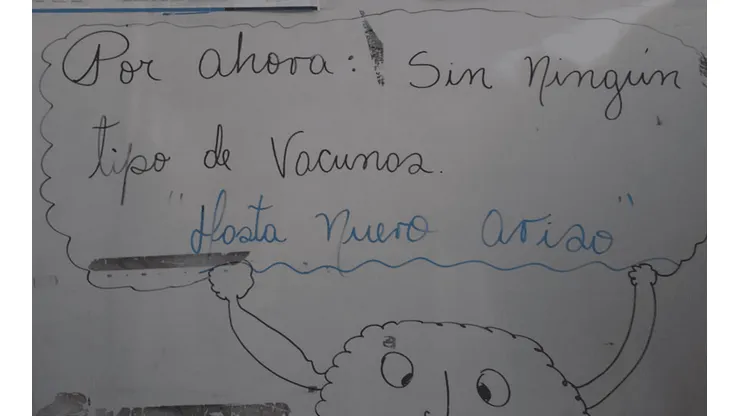 Por ahora: Sin Ningún
tipo de Vacunas.
"Hasta Nuevo Aviso"